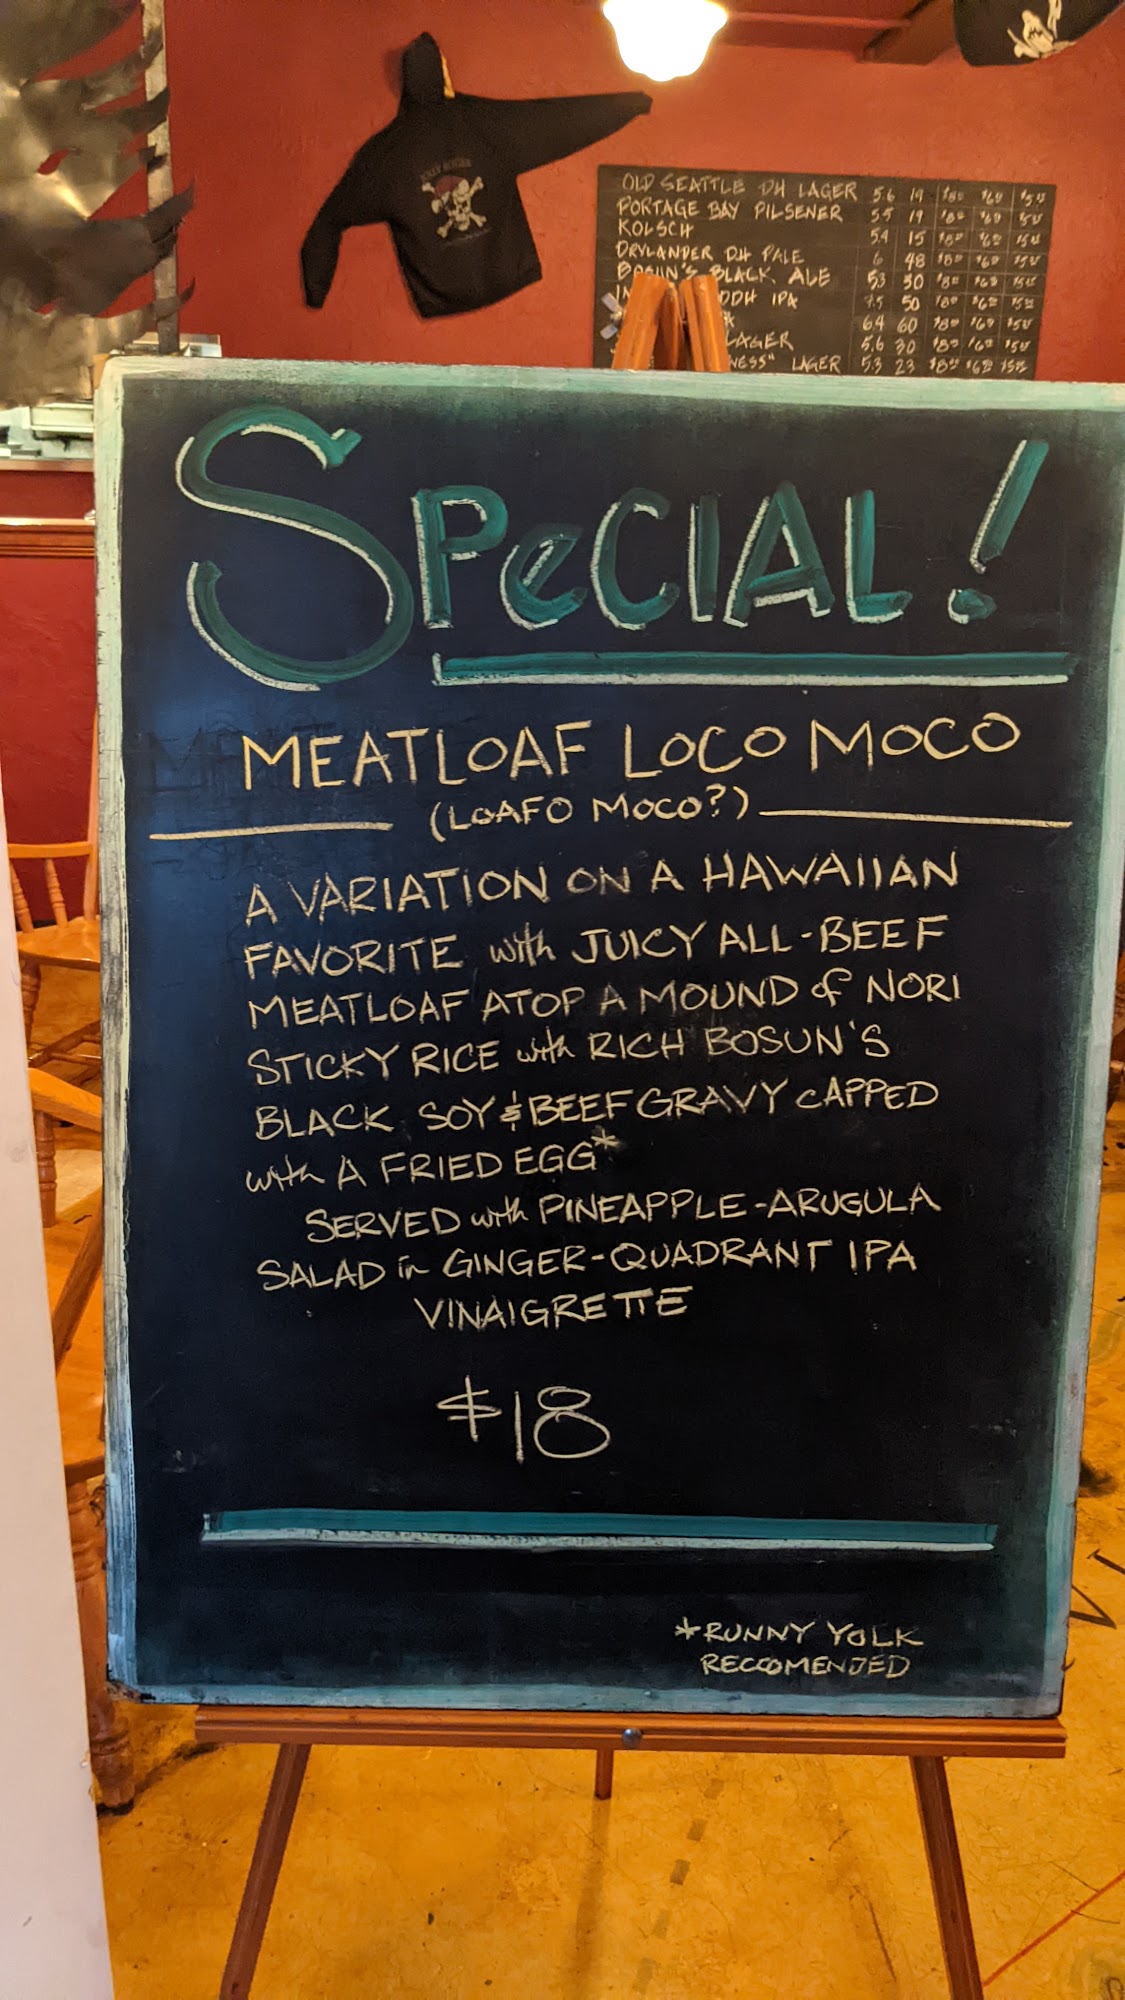 JOLLY ROGER
OLD SEATTLE DH LAGER 5.6 19 $8.00 $6.00 $5.00
PORTAGE BAY PILSENER 5.5 19 $8.00 $6.00 $5.00
KOLSCH 5.4 15 $8.00 $6.00 $5.00
DRYLANDER DH PALE 6 48 $8.00 $6.00 $5.00
BOSUN'S BLACK ALE 5.3 30 $8.00 $6.00 $5.00
DDH IPA 7.5 50 $8.00 $6.00 $5.00
6.4 60 $8.00 $6.00 $5.00
LAGER 5.6 30 $8.00 $6.00 $5.00
NESS" LAGER 5.3 23 $8.00 $6.00 $5.00
SPeCIAL!
MEATLOAF LOCO MOCO
(LOAFO MOCO?)
A VARIATION ON A HAWAIIAN
FAVORITE with JUICY ALL-BEEF
MEATLOAF ATOP A MOUND of NORI
STICKY RICE with RICH BOSUN'S
BLACK SOY & BEEF GRAVY CAPPED
with A FRIED EGG*
SERVED with PINEAPPLE-ARUGULA
SALAD in GINGER-QUADRANT IPA
VINAIGRETTE
$18
*RUNNY YOLK
RECCOMENDED